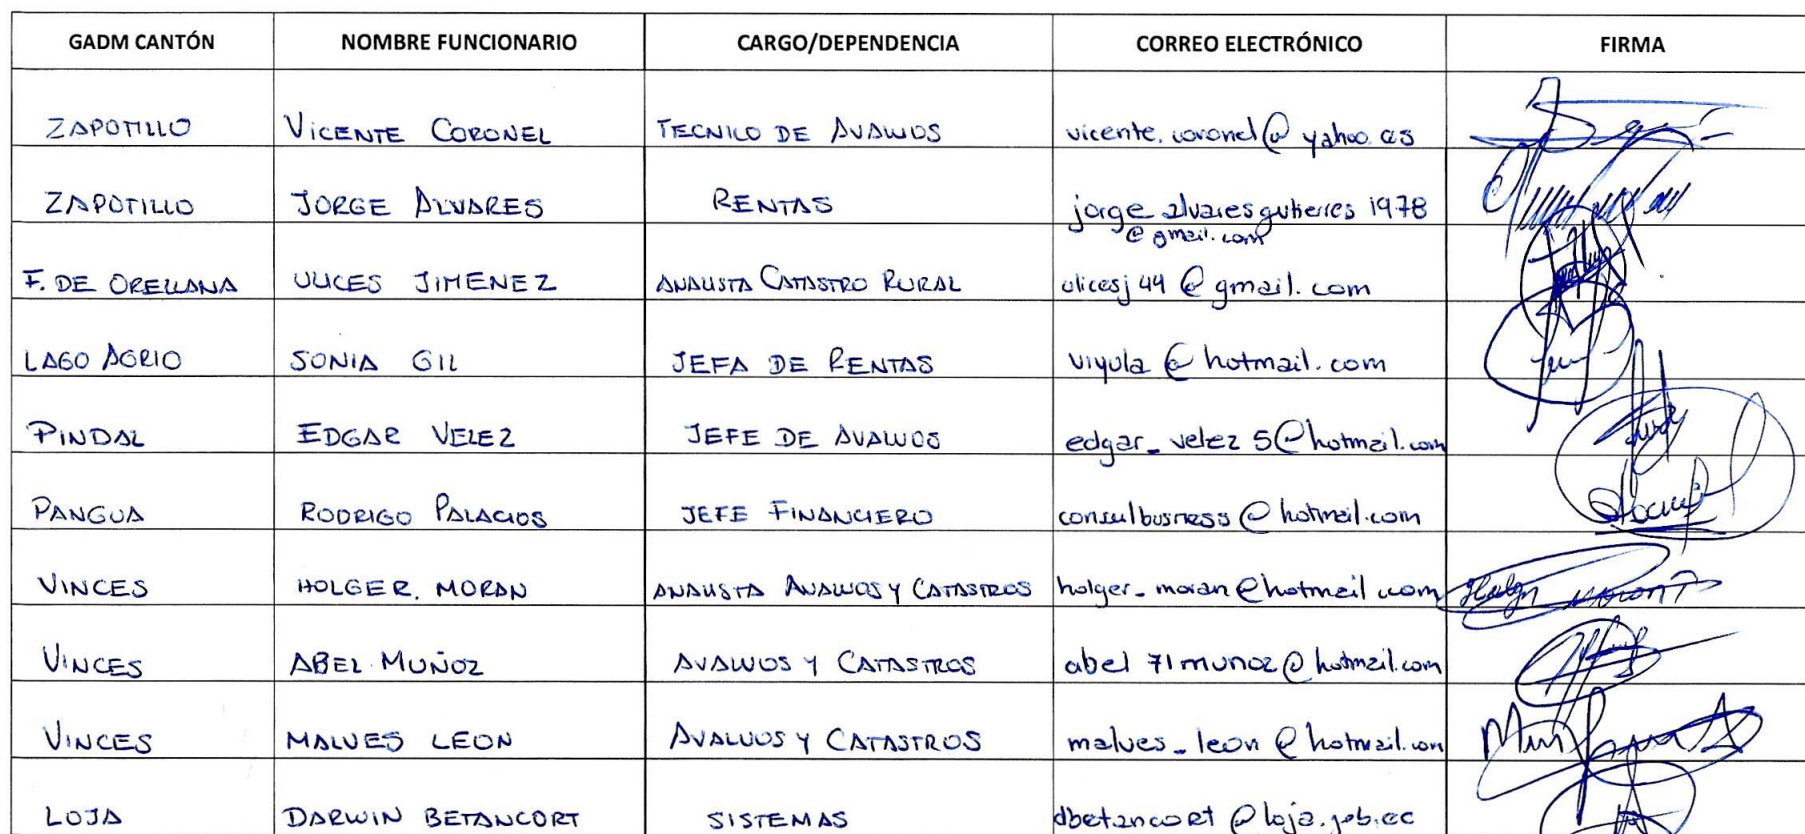 GADM CANTÓN NOMBRE FUNCIONARIO CARGO/DEPENDENCIA CORREO ELECTRÓNICO FIRMA
ZAPOTILLO VICENTE CORONEL TECNICO DE AVALUOS vicente.coronel@yahoo.es
ZAPOTILLO JORGE ALVARES RENTAS jorge alvaresgutierres 1978
@gmail.com
F. DE ORELLANA ULICES JIMENEZ ANALISTA CATASTRO RURAL ulicesj44@gmail.com
LAGO AGRIO SONIA GIL JEFA DE RENTAS viyula@hotmail.com
PINDAL EDGAR VELEZ JEFE DE AVALUOS edgar_velez5@hotmail.com
PANGUA RODRIGO PALACIOS JEFE FINANCIERO consulbusness@hotmail.com
VINCES HOLGER. MORAN ANALISTA AVALUOS Y CATASTROS holger_moran@hotmail com
VINCES ABEL MUÑOZ AVALUOS Y CATASTROS abel71munoz@hotmail.com
VINCES MALVES LEON AVALUOS Y CATASTROS malves_leon@hotmail.com
LOJA DARWIN BETANCORT SISTEMAS dbetancort@loja.gob.ec